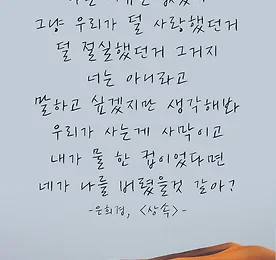 그냥 우리가 덜 사랑했던거
덜 절실했던거 그거지
너는 아니라고
말하고 싶겠지만 생각해봐
우리가 사는게 사막이고
내가 물 한 컵이었다면
네가 나를 버렸을것 같아?
-은희경, <상속>-